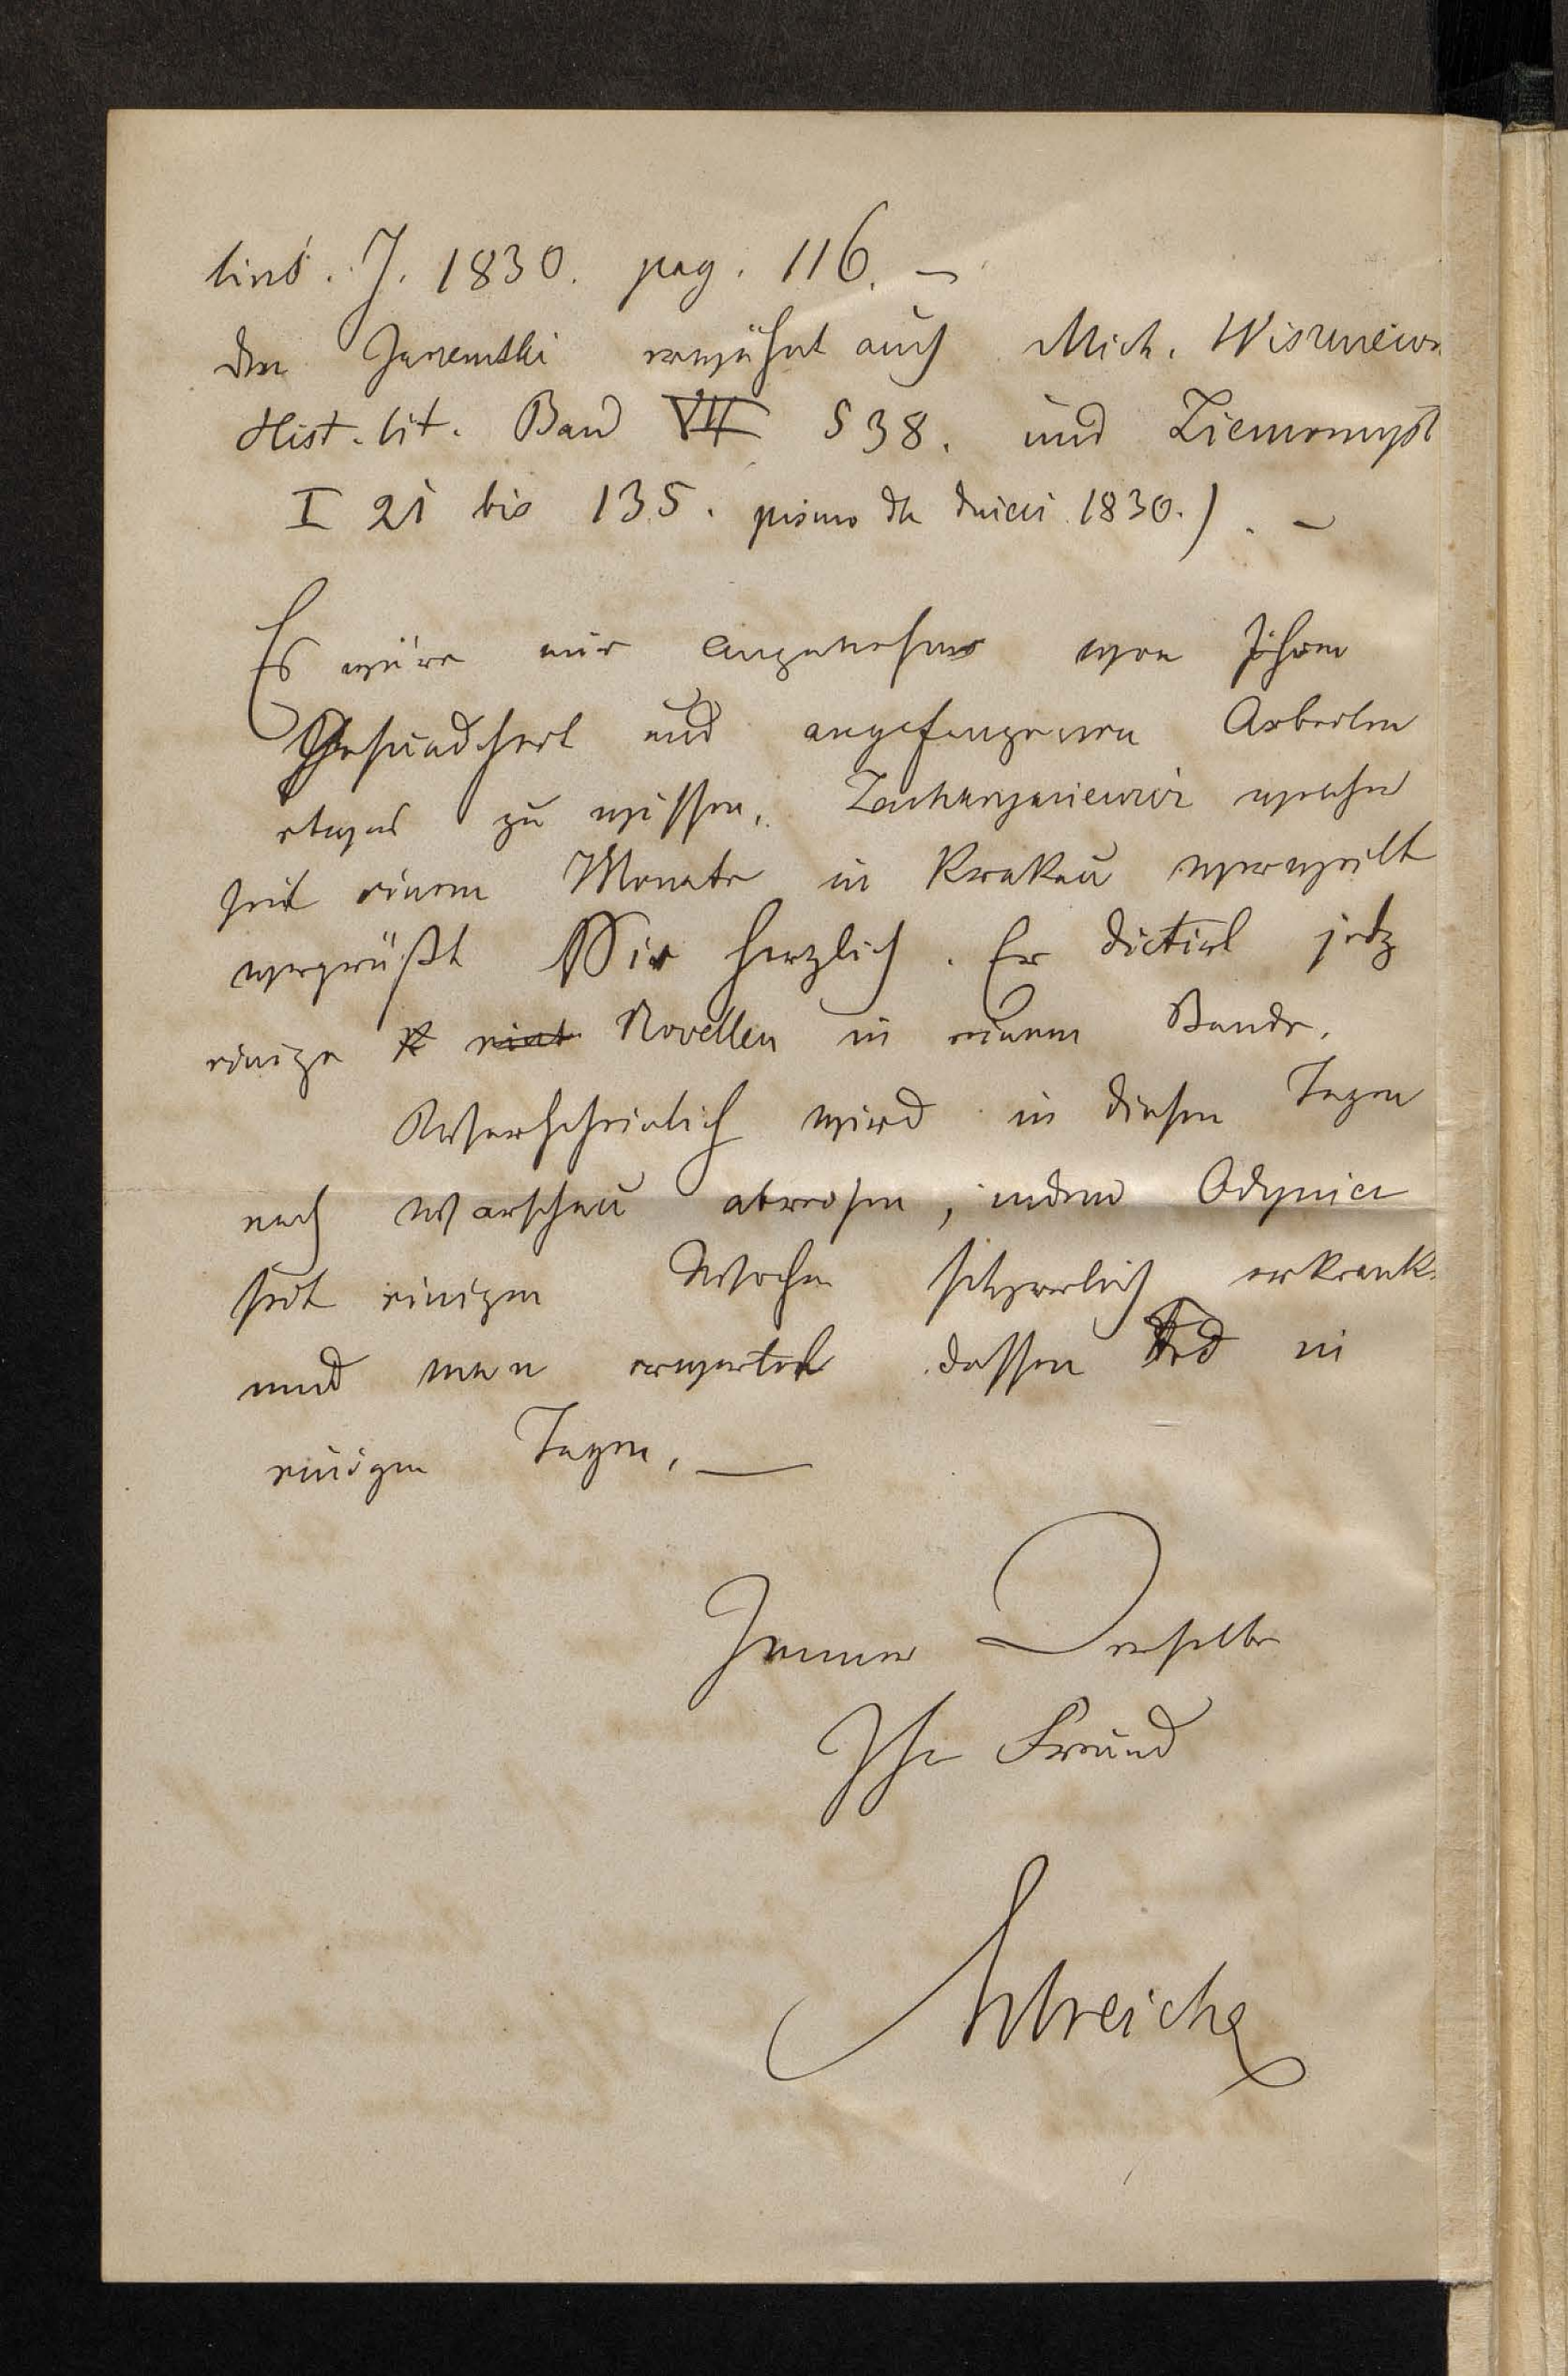 lins. J. 1830. pag. 116. —
den erwähnt auch Mich. Wiszniew
Hist. lit. Band VII S 38. und Ziemomysł
I 21 bis 135. pismo dla dzieci 1830.). —
Es wäre mir angenehm von Ihrem
Gesundheit und angefangenen Arbeiten
etwas zu wissen. Zacharyasiewicz
seit einem Monate in Krakau verweilt
vergrüßt Sie herzlich. Er dictirt jetz
einige Novellen in einem Bande.
Warscheinlich wird in diesen Tagen
nach Warschau abreisen, indem Odyniec
seit einigen Wochen schwerlich erkrank
und man erwartet dessen Tod in
einigen Tagen. —
Immer Derselbe
Ihr Freund
Estreicher